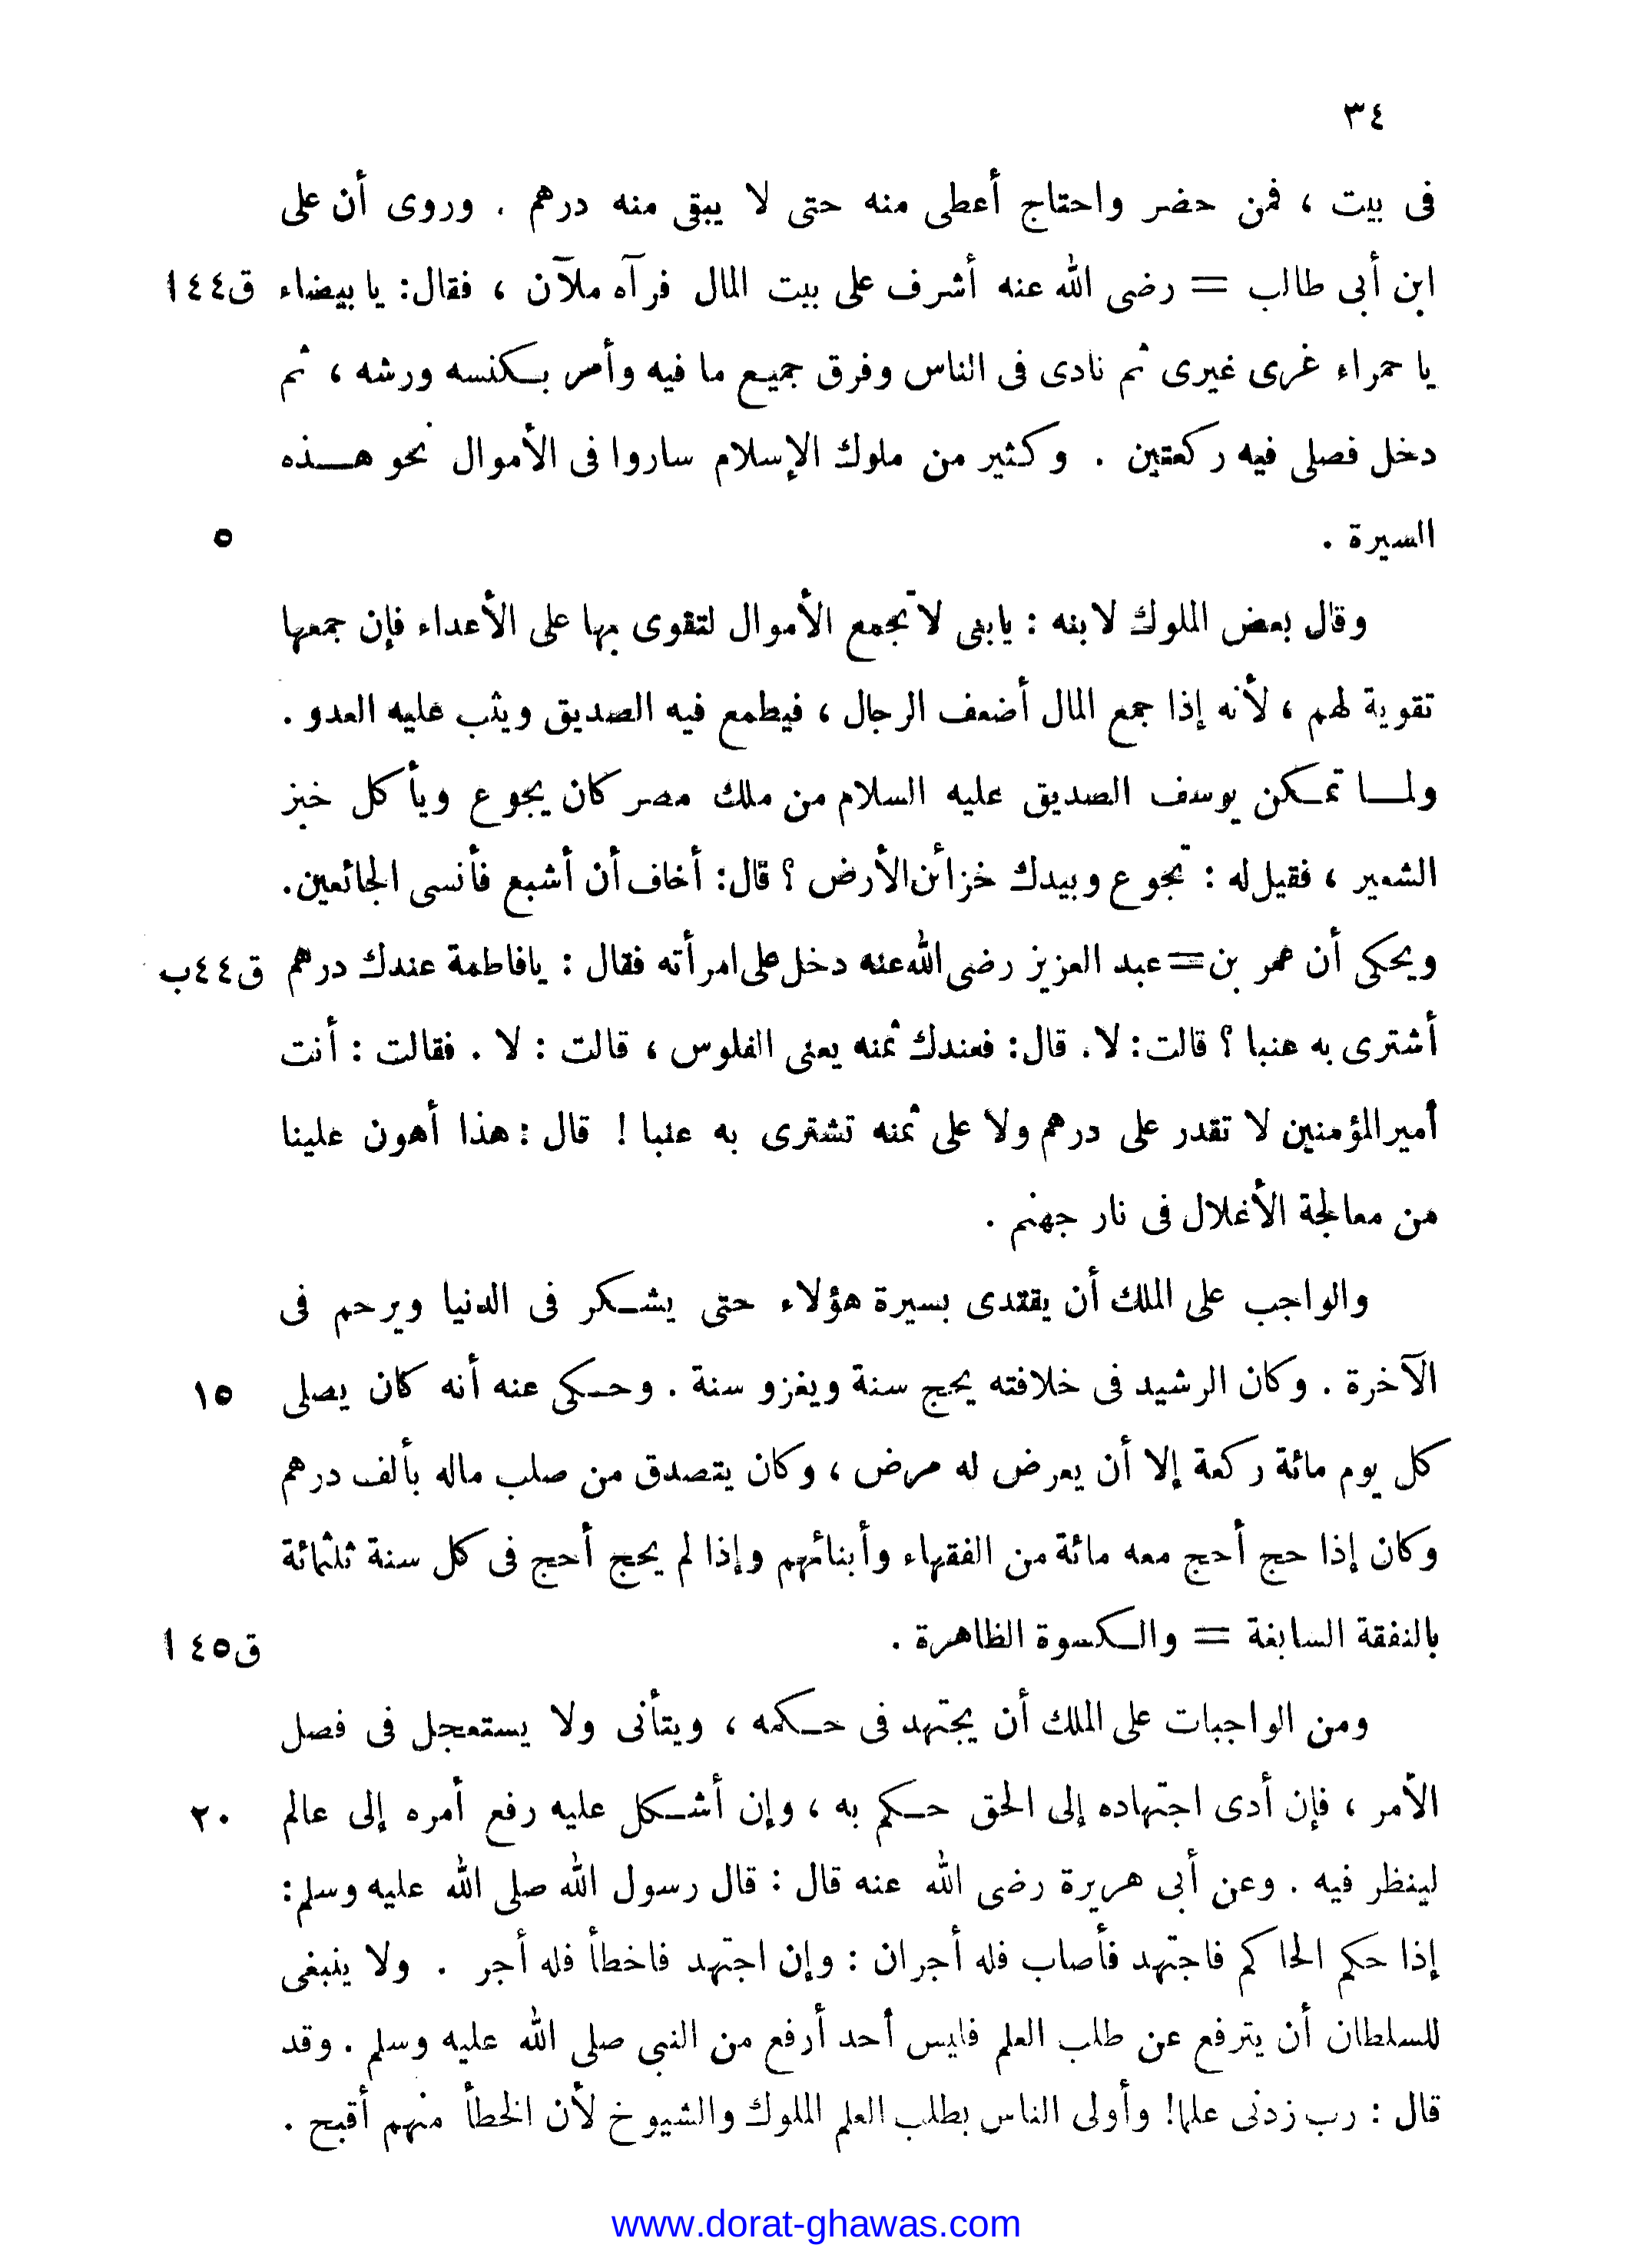 ٣٤
فى بيت ، فمن حضر واحتاج أعطى منه حتى لا يبقى منه درهم . وروى أن على
ابن أبى طالب = رضى الله عنه أشرف على بيت المال فرآه ملآن ، فقال: يا بيضاء ق٤٤ا
يا حمراء غرى غيرى ثم نادى فى الناس وفرق جميع ما فيه وأمر بكنسه ورشه ، ثم
دخل فصلى فيه ركعتين . وكثير من ملوك الإسلام ساروا فى الأموال نحو هذه
السيرة . ٥
وقال بعض الملوك لابنه : يابنى لا تجمع الأموال لتقوى بها على الأعداء فإن جمعها
تقوية لهم ، لأنه إذا جمع المال أضعف الرجال ، فيطمع فيه الصديق ويثب عليه العدو .
ولما تمكن يوسف الصديق عليه السلام من ملك مصر كان يجوع ويأكل خبز
الشعير ، فقيل له : تجوع وبيدك خزائن الأرض ؟ قال: أخاف أن أشبع فأنسى الجائعين.
ويحكى أن عمر بن = عبد العزيز رضى الله عنه دخل على امرأته فقال : يافاطمة عندك درهم ق٤٤ب
أشترى به عنبا ؟ قالت: لا. قال: فعندك ثمنه يعنى الفلوس ، قالت : لا . فقالت : أنت
أمير المؤمنين لا تقدر على درهم ولا على ثمنه تشترى به عنبا ! قال : هذا أهون علينا
من معالجة الأغلال فى نار جهنم .
والواجب على الملك أن يقتدى بسيرة هؤلاء حتى يشكر فى الدنيا ويرحم فى
الآخرة . وكان الرشيد فى خلافته يحج سنة ويغزو سنة . وحكى عنه أنه كان يصلى ١٥
كل يوم مائة ركعة إلا أن يعرض له مرض ، وكان يتصدق من صلب ماله بألف درهم
وكان إذا حج أحج معه مائة من الفقهاء وأبنائهم وإذا لم يحج أحج فى كل سنة ثلثمائة
بالنفقة السابغة = والكسوة الظاهرة . ق٤٥ا
ومن الواجبات على الملك أن يجتهد فى حكمه ، ويتأنى ولا يستعجل فى فصل
الأمر ، فإن أدى اجتهاده إلى الحق حكم به ، وإن أشكل عليه رفع أمره إلى عالم ٢٠
لينظر فيه . وعن أبى هريرة رضى الله عنه قال : قال رسول الله صلى الله عليه وسلم:
إذا حكم الحاكم فاجتهد فأصاب فله أجران : وإن اجتهد فاخطأ فله أجر . ولا ينبغى
للسلطان أن يترفع عن طلب العلم فليس أحد أرفع من النبى صلى الله عليه وسلم . وقد
قال : رب زدنى علما! وأولى الناس بطلب العلم الملوك والشيوخ لأن الخطأ منهم أقبح .
www.dorat-ghawas.com